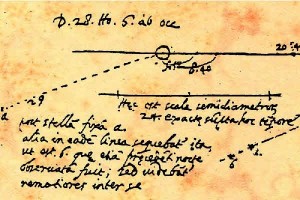 D. 28. Ho. 6. ab occ
20 34
6 40
Hec est scala semidiametror
24. exacte supputatur tempore
post stellã fixã a
alia in eadẽ linea sequebat ita
ut est b. que etiã precedẽti nocte
observata fuit; sed videbãt
remotiores inter se
a
b